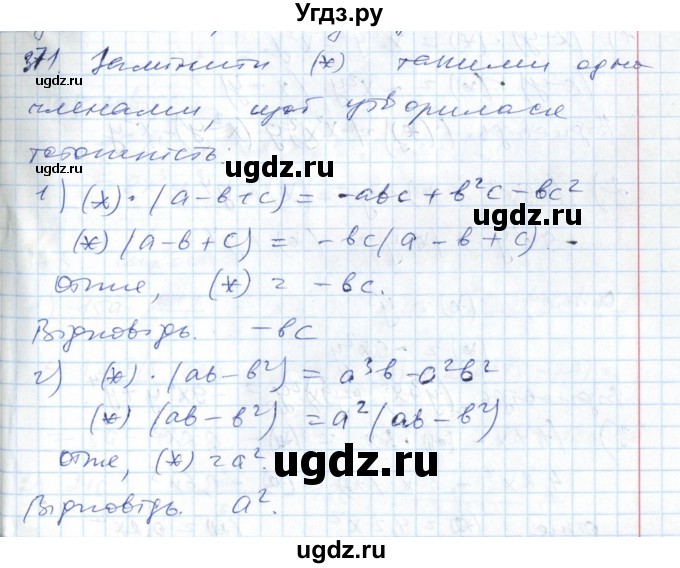 Угдз.ру
371. Замінити (*) такими одно
членами, щоб утворилася
тотожність.
ugdz.ru
1) (*)·(a-b+c) = -abc+b²c-bc²
(*)(a-b+c) = -bc(a-b+c).
ugdz.ru
Отже, (*) = -bc.
Відповідь. -bc
ugdz.ru
2) (*)·(ab-b²) = a³b-a²b²
(*) (ab-b²) = a²(ab-b²)
Отже, (*) = a².
ugdz.ru
Відповідь. a².
ugdz.ru